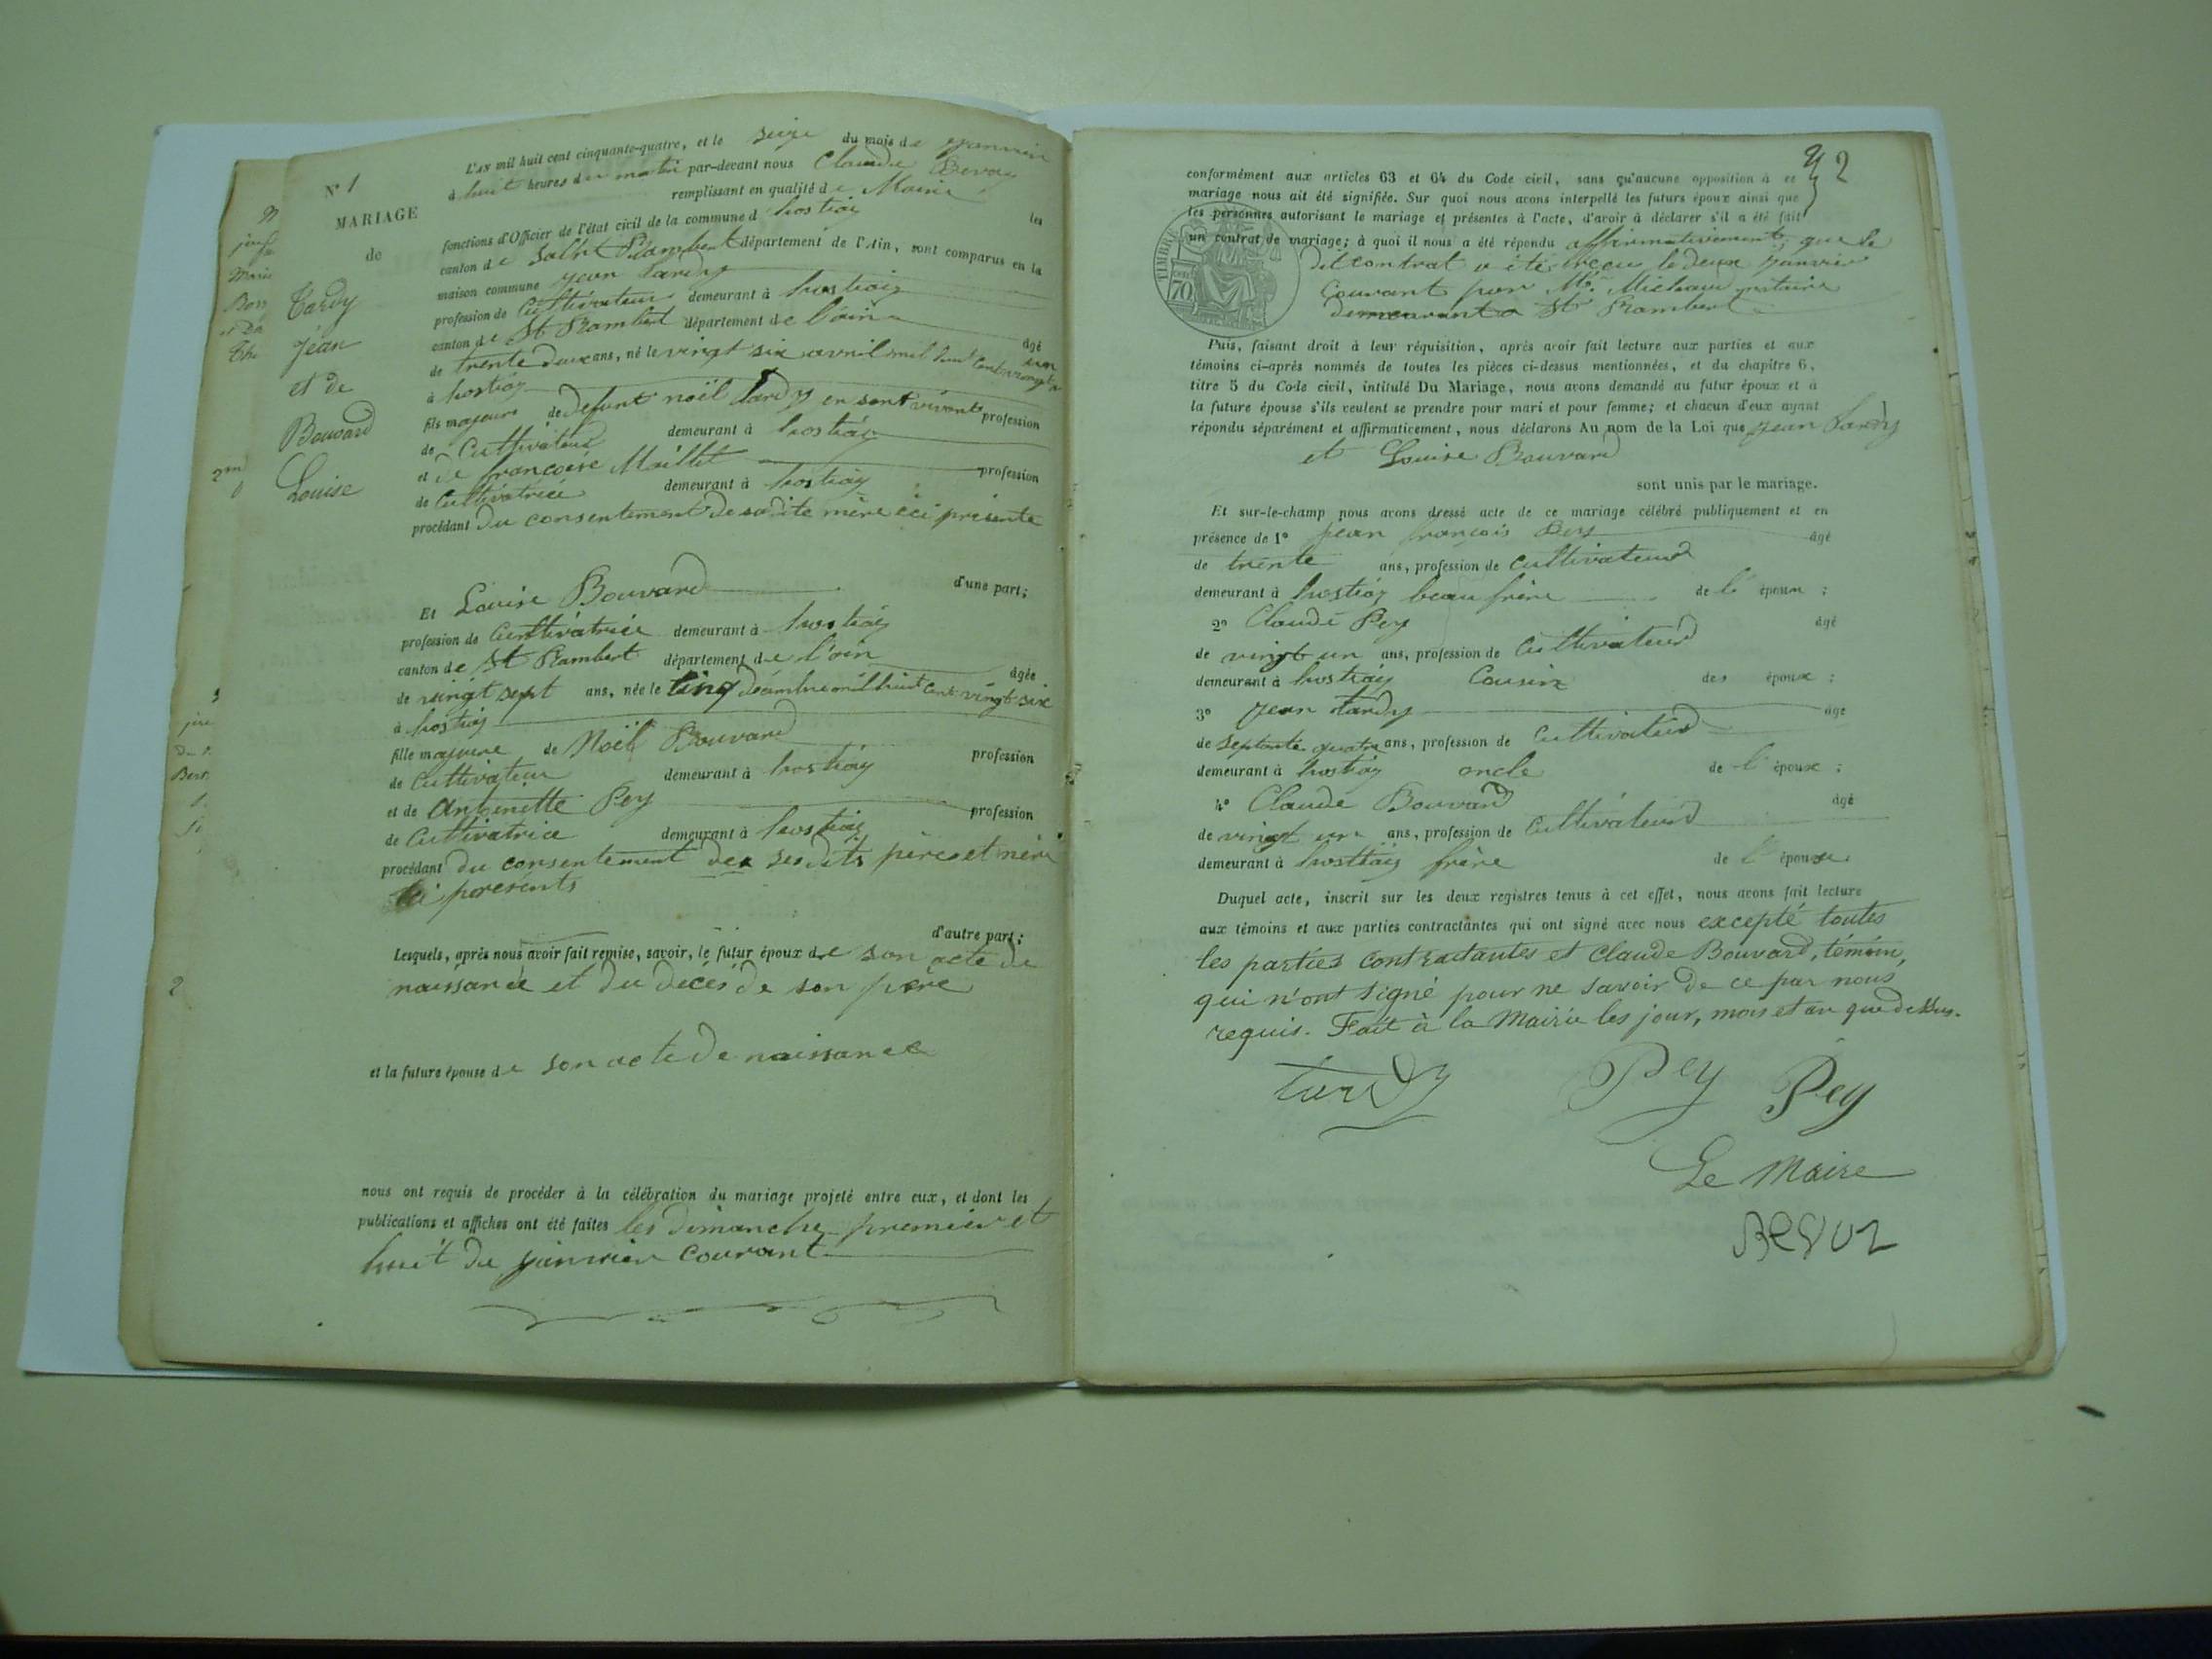 N° 1
MARIAGE
de
Tardy
Jéan
et de
Bouvard
Louise
L'AN mil huit cent cinquante-quatre, et le seize du mois de janvier
à huit heures du matin par-devant nous Claude Bevoz
remplissant en qualité de Maire les
fonctions d'Officier de l'état civil de la commune d hostiaz
canton de Saint Rambert département de l'Ain, sont comparus en la
maison commune jean tardy
profession de Cultivateur demeurant à hostiaz
canton de St Rambert département de l'ain âgé
de trente deux ans, né le vingt six avril mil huit cent vingt un
à hostiaz
fils majeur de defunt noël tardy en sont vivant profession
de Cultivateur demeurant à hostiaz
et de françoise Maillet profession
de Cultivatrice demeurant à hostiaz
procédant du consentement de sadite mère ici présente
d'une part;
Et Louise Bouvard
profession de Cultivatrice demeurant à hostiaz
canton de St Rambert département de l'ain âgée
de vingt sept ans, née le cinq décembre mil huit cent vingt six
à hostiaz
fille majeure de Noël Bouvard profession
de Cultivateur demeurant à hostiaz
et de Antoinette Pey profession
de Cultivatrice demeurant à hostiaz
procédant du consentement de ses dits père et mère
ici présents
d'autre part;
Lesquels, après nous avoir fait remise, savoir, le futur époux de son acte de
naissance et du décés de son père
et la future épouse de son acte de naissance
nous ont requis de procéder à la célébration du mariage projeté entre eux, et dont les
publications et affiches ont été faites les dimanche premier et
huit de janvier courant
2
conformément aux articles 63 et 64 du Code civil, sans qu'aucune opposition à ce
mariage nous ait été signifiée. Sur quoi nous avons interpellé les futurs époux ainsi que
les personnes autorisant le mariage et présentes à l'acte, d'avoir à déclarer s'il a été fait
un contrat de mariage; à quoi il nous a été répondu affirmativement, que le
dit contrat a été reçu le deux janvier
Courant par Me Michaud notaire
demeurant a St Rambert
TIMBRE
70
Puis, faisant droit à leur réquisition, après avoir fait lecture aux parties et aux
témoins ci-après nommés de toutes les pièces ci-dessus mentionnées, et du chapitre 6,
titre 5 du Code civil, intitulé Du Mariage, nous avons demandé au futur époux et à
la future épouse s'ils veulent se prendre pour mari et pour femme; et chacun d'eux ayant
répondu séparément et affirmativement, nous déclarons Au nom de la Loi que jean tardy
et Louise Bouvard
sont unis par le mariage.
Et sur-le-champ nous avons dressé acte de ce mariage célébré publiquement et en
présence de 1° jean françois Pey âgé
de trente ans, profession de Cultivateur
demeurant à hostiaz beau frère de l' époux ;
2° Claude Pey âgé
de vingt un ans, profession de Cultivateur
demeurant à hostiaz Cousin des époux ;
3° jean tardy âgé
de septante quatre ans, profession de Cultivateur
demeurant à hostiaz oncle de l' époux ;
4° Claude Bouvard âgé
de vingt un ans, profession de Cultivateur
demeurant à hosttiaz frère de l' épouse
Duquel acte, inscrit sur les deux registres tenus à cet effet, nous avons fait lecture
aux témoins et aux parties contractantes qui ont signé avec nous excepté toutes
les parties contractantes et Claude Bouvard, témoin,
qui n'ont signé pour ne savoir de ce par nous
requis. Fait à la Mairie les jour, mois et an que dessus.
tardy Pey Pey
Le Maire
BEVOZ